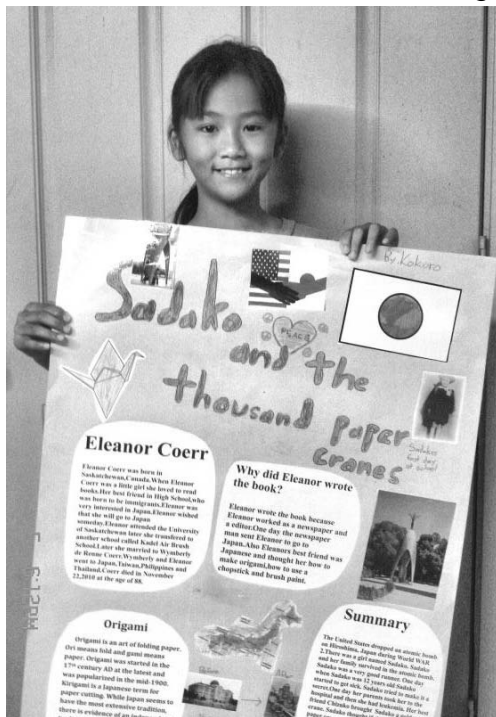 By Kokoro
Sadako
PEACE
and the
thousand paper
cranes
Sadako
first day
of school
Eleanor Coerr
Eleanor Coerr was born in
Saskatchewan,Canada.When Eleanor
Coerr was a little girl she loved to read
books.Her best friend in High School,who
was born to be immigrants,Eleanor was
very interested in Japan,Eleanor wished
that she will go to Japan
someday.Eleanor attended the University
of Saskatchewan later she transfered to
another school called Kadel Air Brush
School.Later she married to Wymberly
de Renne Coerr,Wymberly and Eleanor
went to Japan,Taiwan,Philippines and
Thailand.Coerr died in November
22,2010 at the age of 88.
Why did Eleanor wrote
the book?
Eleanor wrote the book because
Eleanor worked as a newspaper and
a editor.One day the newspaper
man sent Eleanor to go to
Japan.Also Eleanors best friend was
Japanese and thought her how to
make origami,how to use a
chopstick and brush paint.
Origami
Origami is an art of folding paper.
Ori means fold and gami means
paper. Origami was started in the
17th century AD at the latest and
was popularized in the mid-1900.
Kirigami is a Japanese term for
paper cutting. While Japan seems to
have the most extensive tradition,
there is evidence of an
Summary
The United States dropped an atomic bomb
on Hiroshima, Japan during World WAR
2.There was a girl named Sadako. Sadako
and her family survived in the atomic bomb.
Sadako was a very good runner. One day
when Sadako was 12 years old Sadako
started to get sick. Sadako tried to make it a
secret.One day her parents took her to the
hospital and then she had leukemia. Her best
friend Chizuko brought Sadako
crane. Sadako